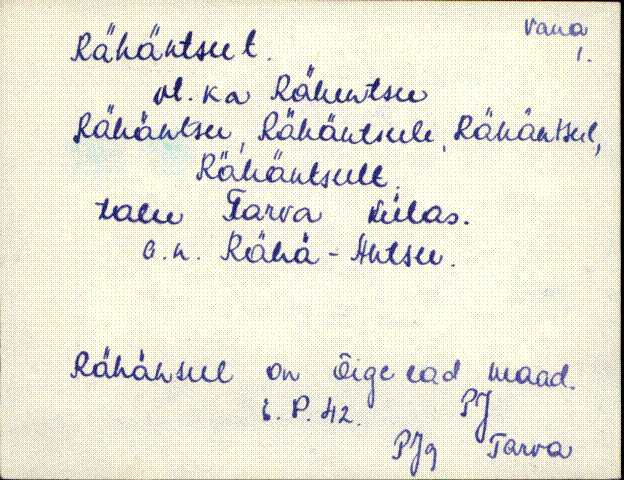 Vana
1.
Rähäntsu t.
vt. ka Rähentsu
Rähäntsu, Rähäntsule, Rähäntsul,
Rähäntsult.
talu Tarva külas.
o.n. Rähä-Antsu.
Rähänsul on õige ead maad.
P. 42. PJ
PJg Tarva